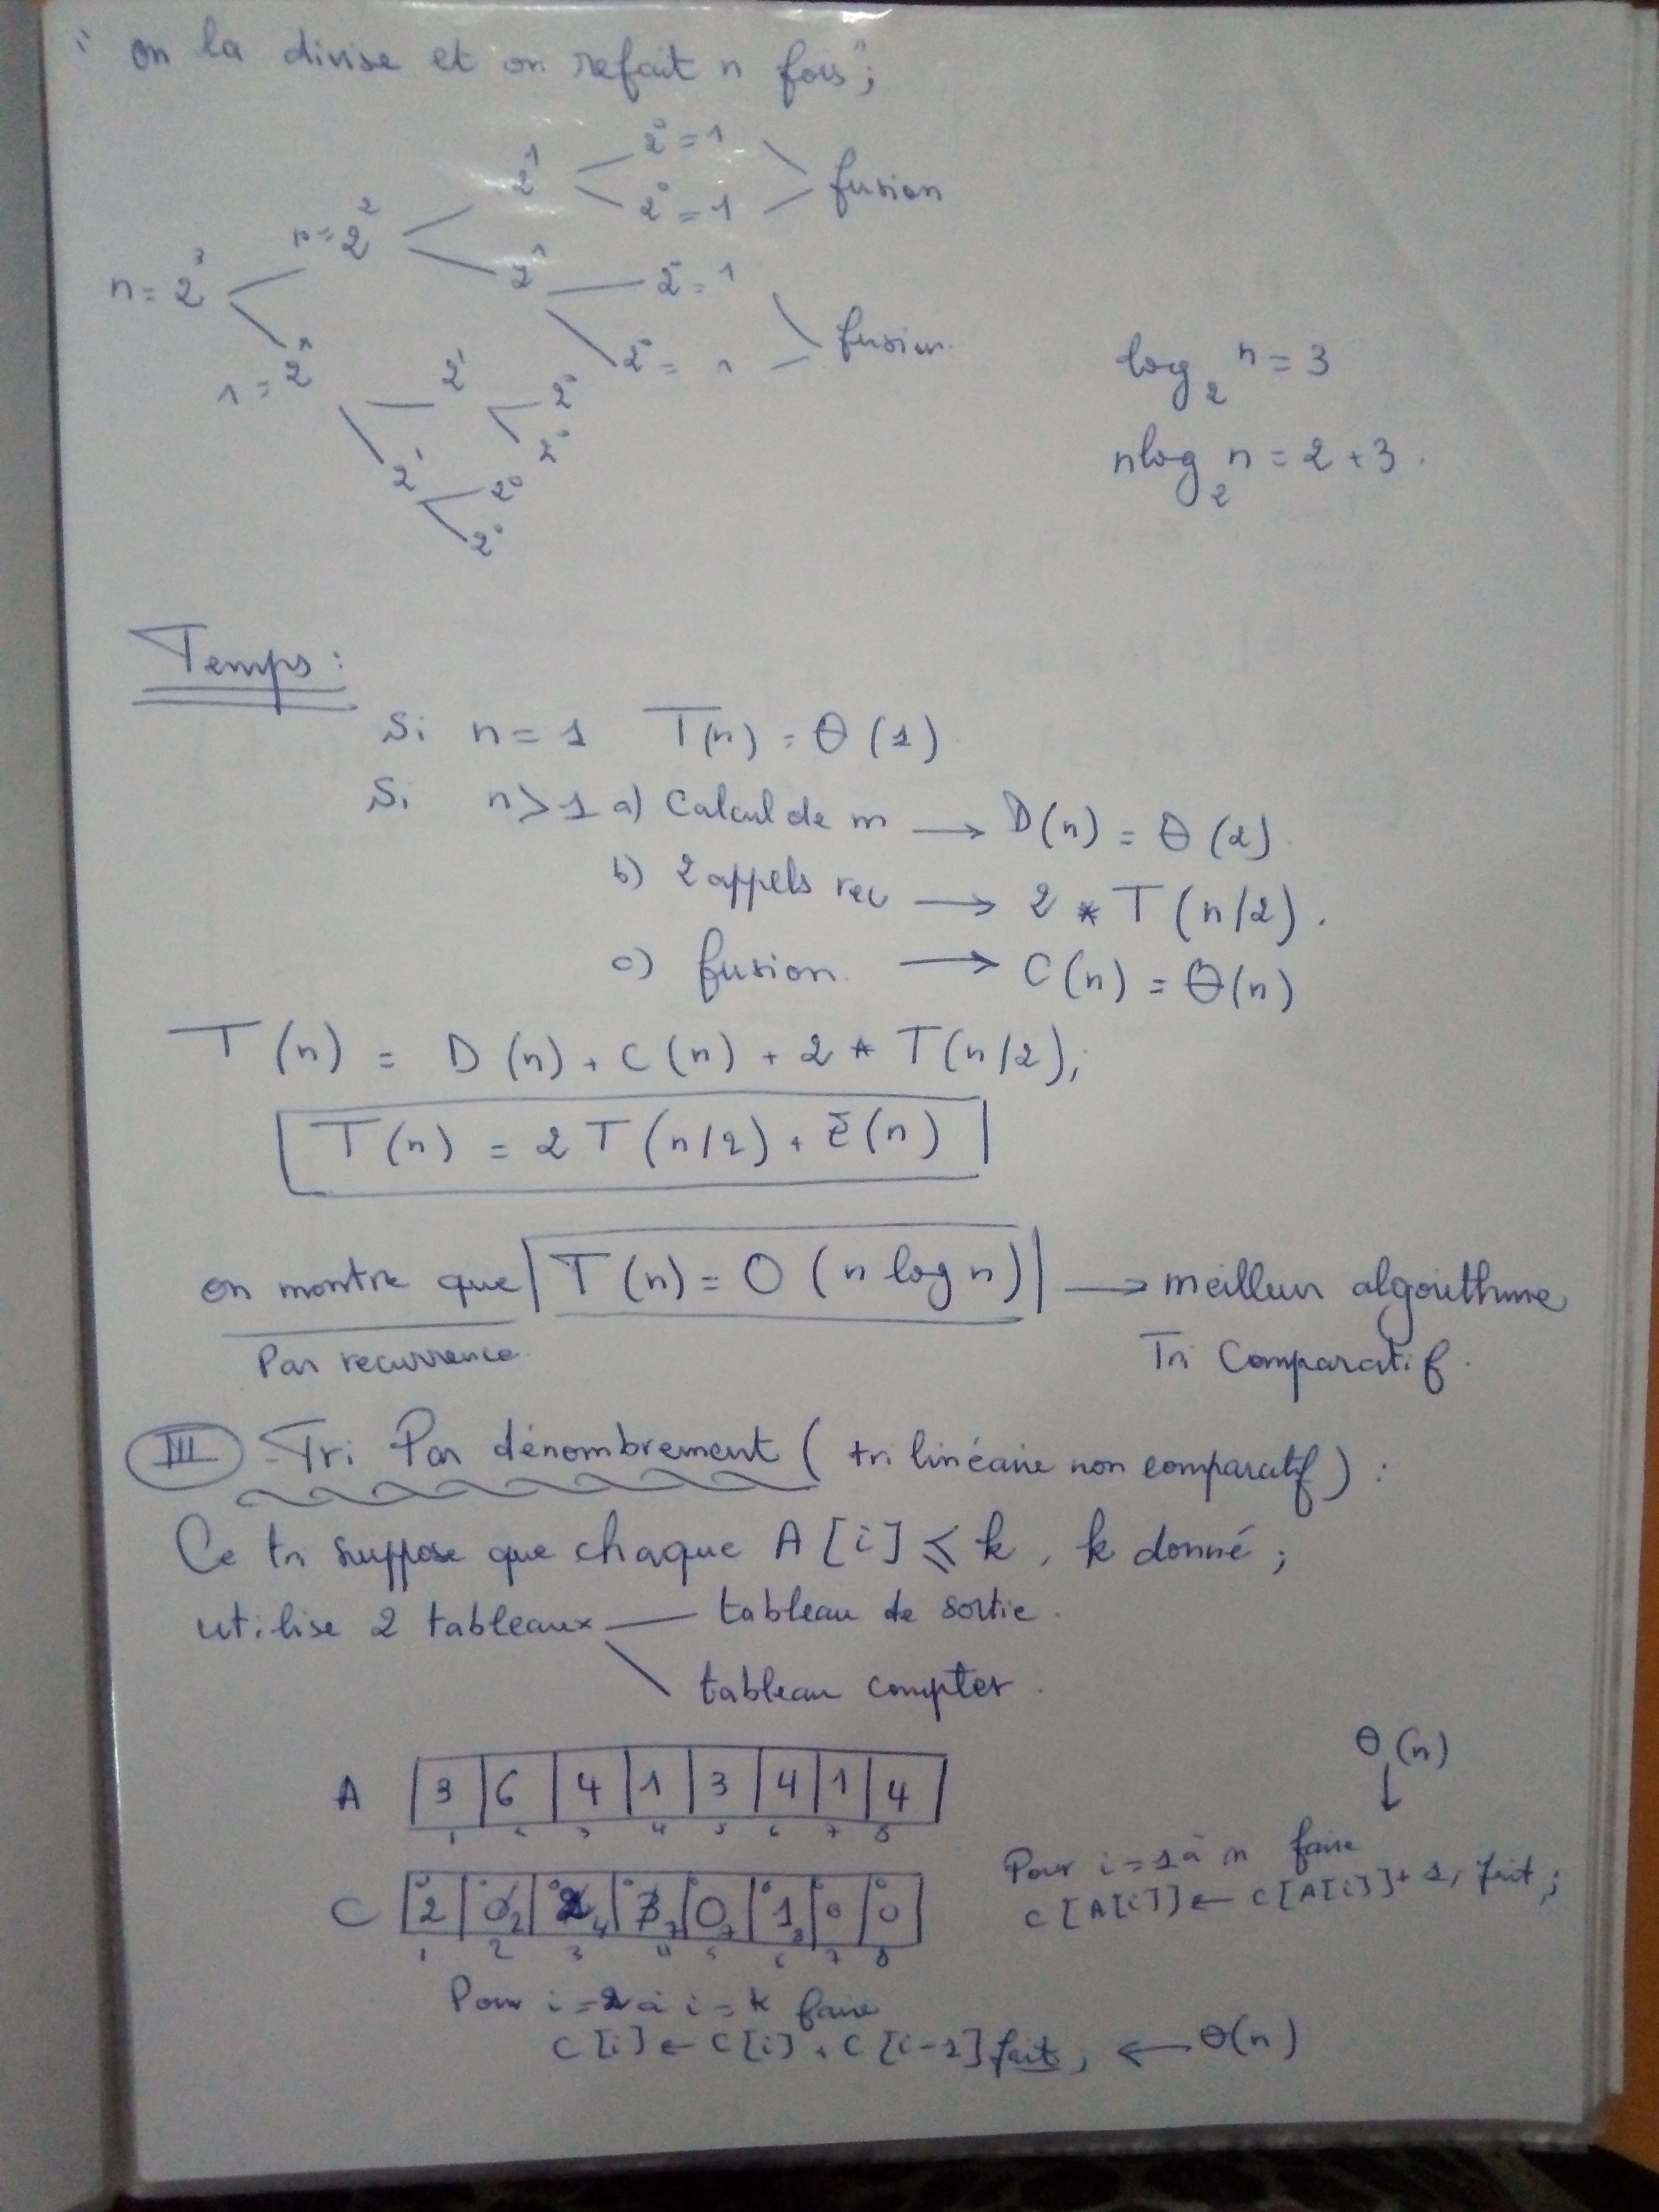 " on la divise et on refait n fois";
2¹ 2⁰ = 1
n = 2² 2⁰ = 1 fusion
n = 2³ 2¹ 2⁰ = 1
2⁰ = 1 fusion
n = 2² 2¹ 2⁰
2⁰
2¹ 2⁰
2⁰
log₂ n = 3
nlog₂ n = 2 + 3.
Temps:
Si n = 1 T(n) = Θ(1)
Si n > 1 a) Calcul de m → D(n) = Θ(1).
b) 2 appels rec → 2 * T(n/2).
c) fusion. → C(n) = Θ(n)
T(n) = D(n) + C(n) + 2 * T(n/2);
T(n) = 2 T(n/2) + (n)
on montre que T(n) = O(n log n) → meilleur algorithme
Par recurrence. Tri Comparatif.
III - Tri Par dénombrement ( tri linéaire non comparatif ) :
Ce tri suppose que chaque A[i] ⩽ k, k donné ;
utilise 2 tableaux tableau de sortie.
tableau compter.
Θ(n)
↓
A 3 6 4 1 3 4 1 4
1 2 3 4 5 6 7 8
Pour i = 1 à n faire
C[A[i]] ← C[A[i]] + 1, fait ;
0 0 0 0 0 0 0 0
C 2 0 2 3 0 1 0 0
2 4 7 7 8
1 2 3 4 5 6 7 8
Pour i = 2 à i = k faire
C[i] ← C[i] + C[i-1] fait; ← Θ(n)